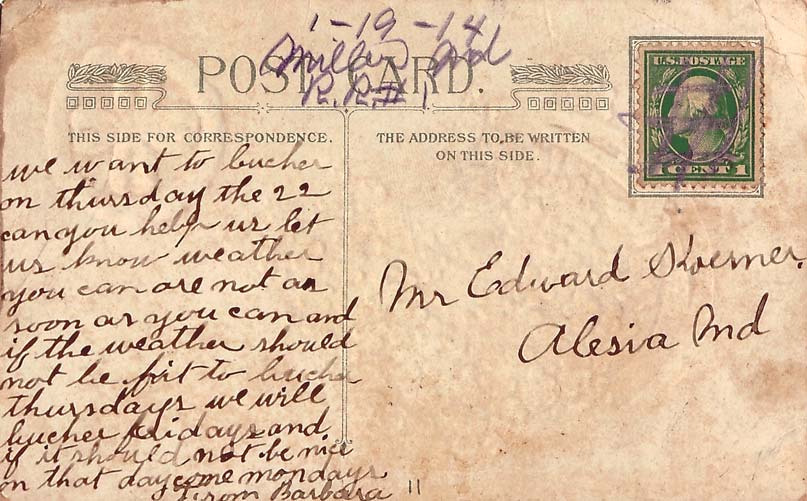 1-19-14
Millers Md
R.R.# 1
POST CARD.
U.S. POSTAGE
1 CENT 1
THIS SIDE FOR CORRESPONDENCE.
THE ADDRESS TO BE WRITTEN
ON THIS SIDE.
we want to bucher
on thursday the 22
can you help us let
us know weather
you can are not as
soon as you can and
if the weather should
not be fit to bucher
thursdays we will
bucher fridays and
if it should not be nice
on that day come mondays
From Barbara
Mr Edward Koerner.
Alesia Md
11